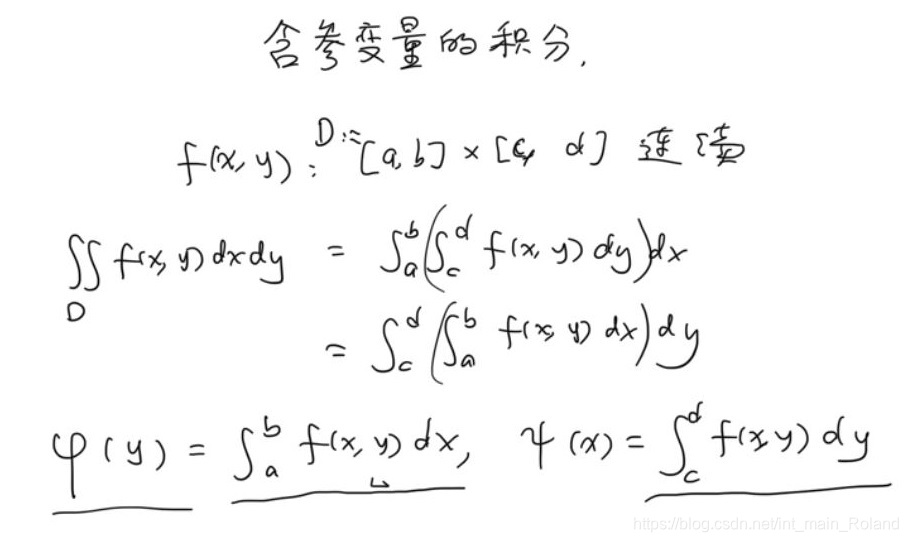 含参变量的积分.
f(x, y) : D := [a, b] × [c, d] 连续
∬_D f(x, y) dx dy = ∫_a^b (∫_c^d f(x, y) dy) dx
= ∫_c^d (∫_a^b f(x, y) dx) dy
φ(y) = ∫_a^b f(x, y) dx, ψ(x) = ∫_c^d f(x, y) dy
https://blog.csdn.net/int_main_Roland